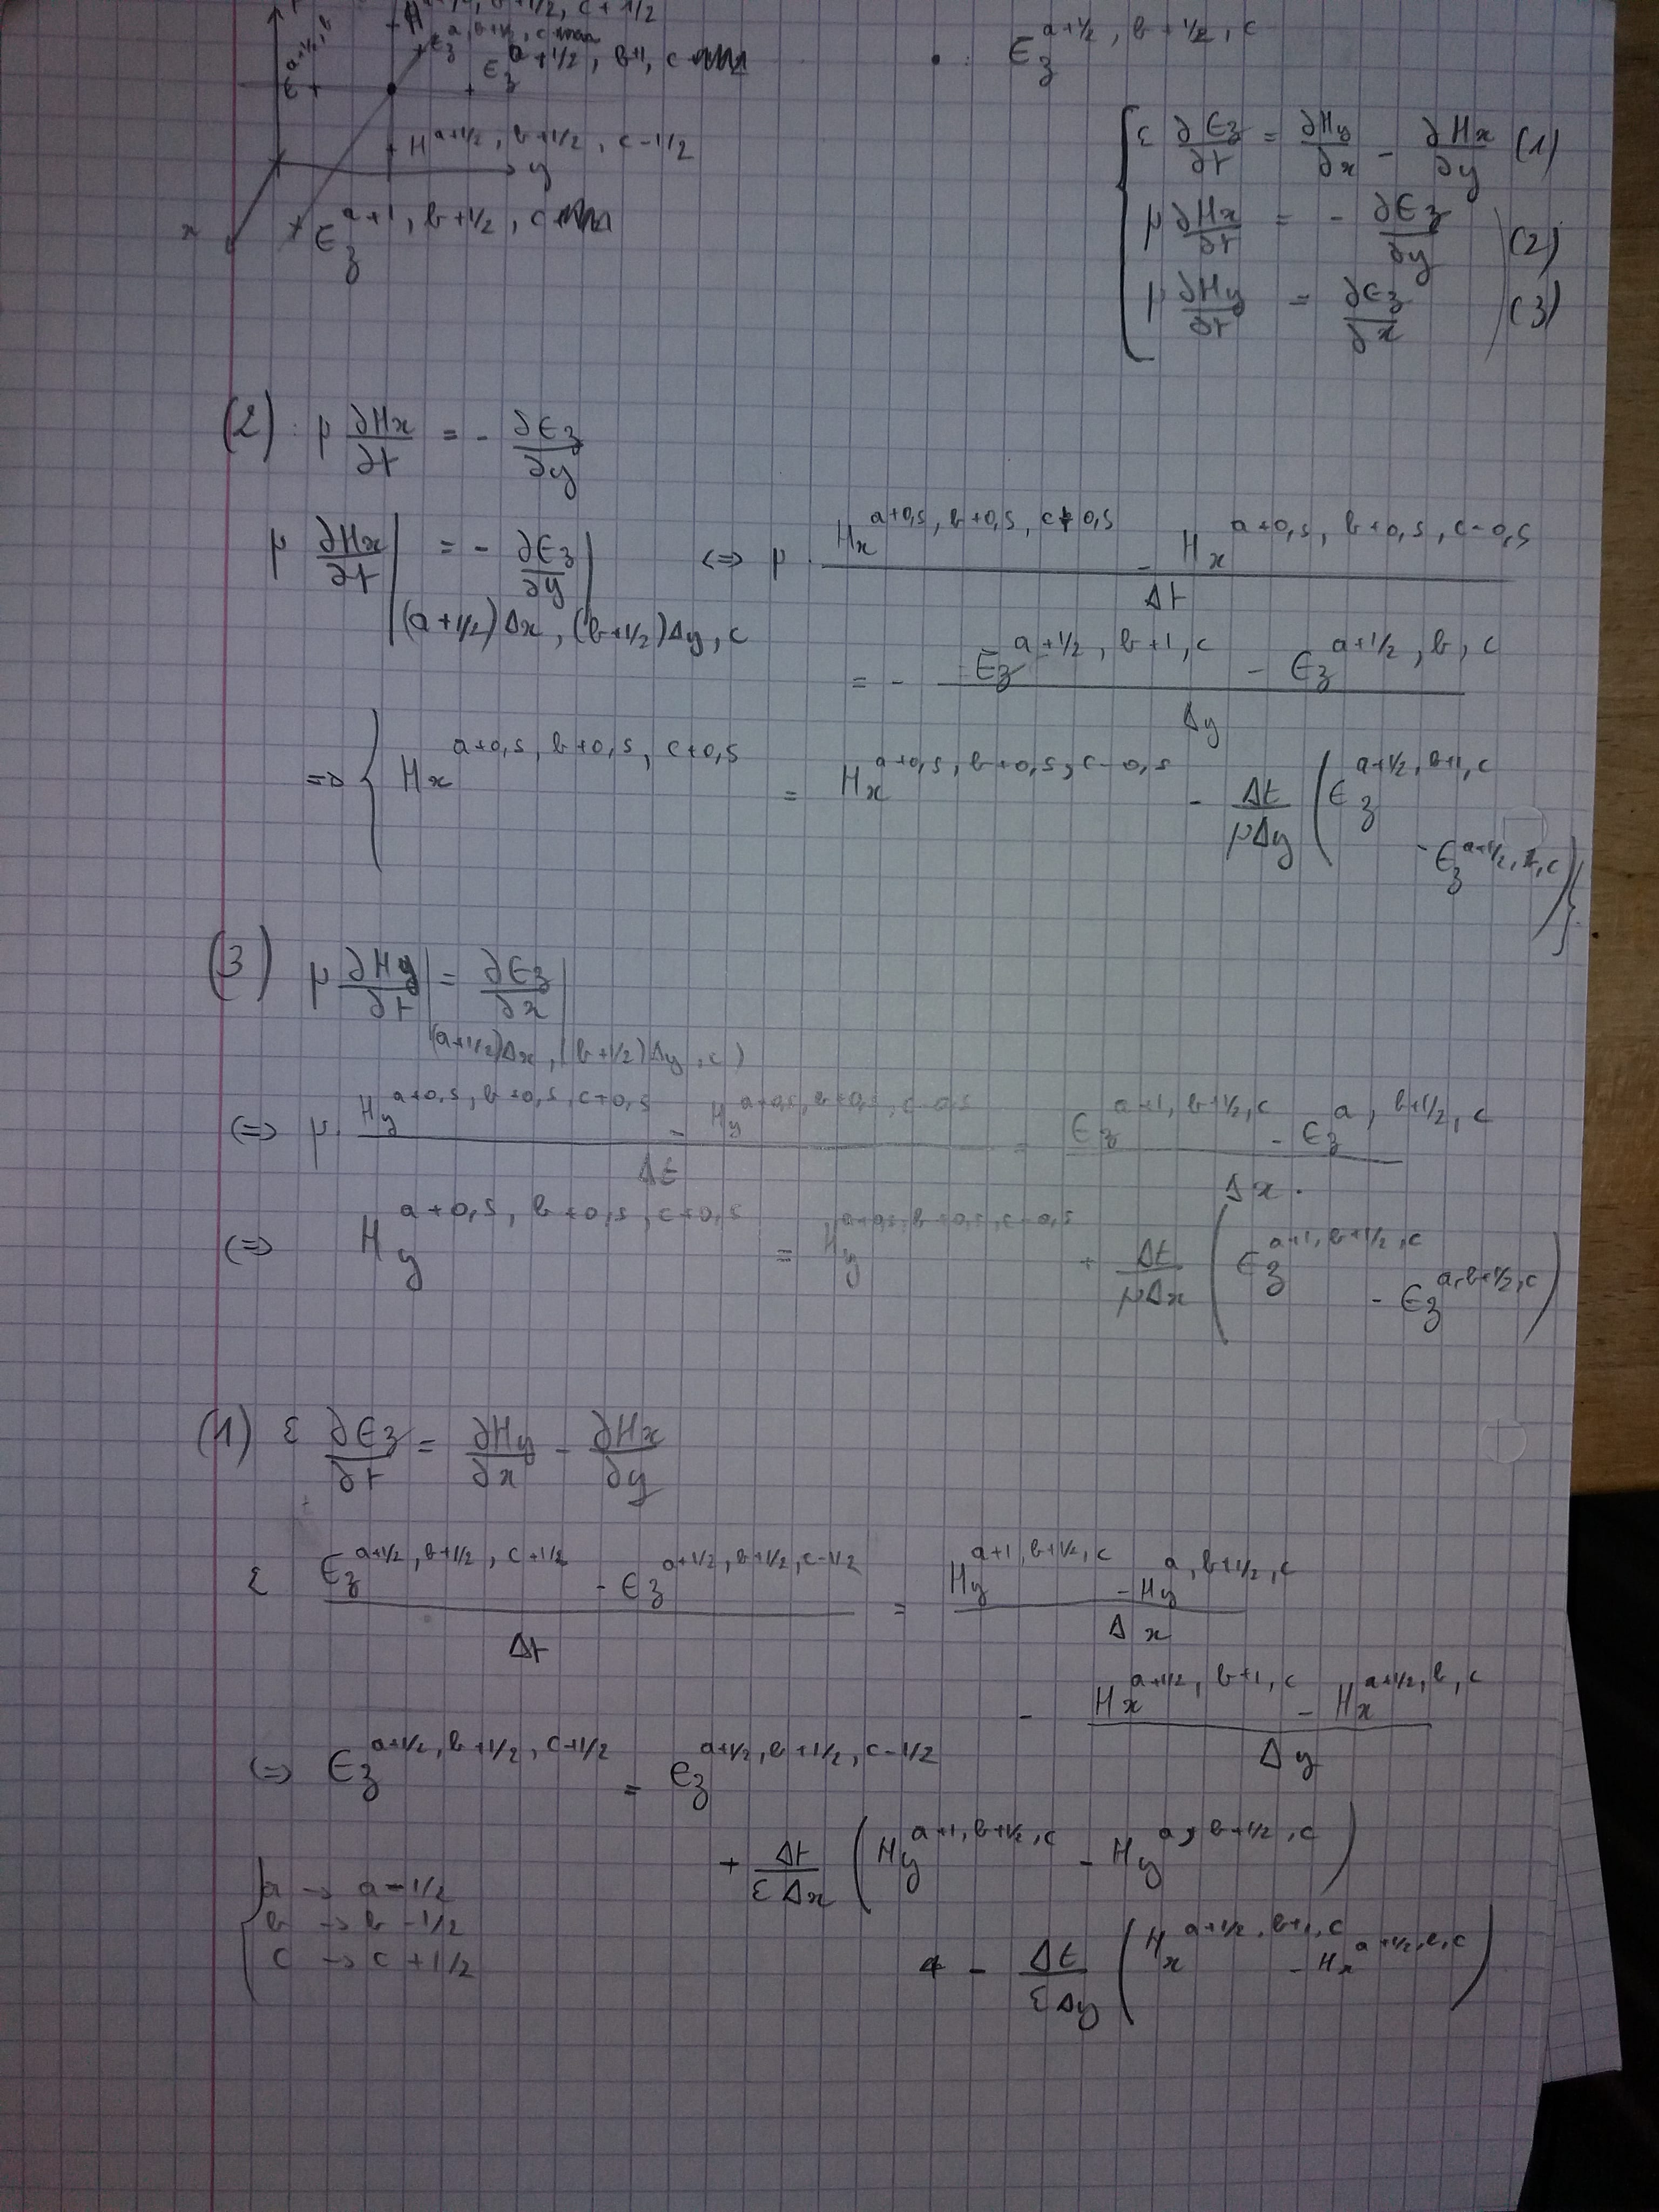 H^{a+1/2, b+1/2, c+1/2}
E_z^{a, b+1/2, c}
E_z^{a+1/2, b+1, c}
E_z^{a+1/2, b+1/2, c}
H^{a+1/2, b+1/2, c-1/2}
y
x
E_z^{a+1, b+1/2, c}
ε ∂E_z/∂t = ∂H_y/∂x - ∂H_x/∂y (1)
μ ∂H_x/∂t = - ∂E_z/∂y (2)
μ ∂H_y/∂t = ∂E_z/∂x (3)
(2) : μ ∂H_x/∂t = - ∂E_z/∂y
μ ∂H_x/∂t | = - ∂E_z/∂y | (a+1/2)Δx, (b+1/2)Δy, c
<=> μ · (H_x^{a+0,5, b+0,5, c+0,5} - H_x^{a+0,5, b+0,5, c-0,5}) / Δt
= - (E_z^{a+1/2, b+1, c} - E_z^{a+1/2, b, c}) / Δy
=> { H_x^{a+0,5, b+0,5, c+0,5} = H_x^{a+0,5, b+0,5, c-0,5} - Δt/(μΔy) ( E_z^{a+1/2, b+1, c}
- E_z^{a+1/2, b, c} ) }
(3) μ ∂H_y/∂t | = ∂E_z/∂x |
(a+1/2)Δx, (b+1/2)Δy, c)
<=> μ · (H_y^{a+0,5, b+0,5, c+0,5} - H_y^{a+0,5, b+0,5, c-0,5}) / Δt = (E_z^{a+1, b+1/2, c} - E_z^{a, b+1/2, c}) / Δx .
<=> H_y^{a+0,5, b+0,5, c+0,5} = H_y^{a+0,5, b+0,5, c-0,5} + Δt/(μΔx) ( E_z^{a+1, b+1/2, c}
- E_z^{a, b+1/2, c} )
(1) ε ∂E_z/∂t = ∂H_y/∂x - ∂H_x/∂y
ε (E_z^{a+1/2, b+1/2, c+1/2} - E_z^{a+1/2, b+1/2, c-1/2}) / Δt = (H_y^{a+1, b+1/2, c} - H_y^{a, b+1/2, c}) / Δx
- (H_x^{a+1/2, b+1, c} - H_x^{a+1/2, b, c}) / Δy
<=> E_z^{a+1/2, b+1/2, c+1/2} = E_z^{a+1/2, b+1/2, c-1/2}
+ Δt/(εΔx) ( H_y^{a+1, b+1/2, c} - H_y^{a, b+1/2, c} )
- Δt/(εΔy) ( H_x^{a+1/2, b+1, c} - H_x^{a+1/2, b, c} )
{ a -> a-1/2
b -> b-1/2
c -> c+1/2